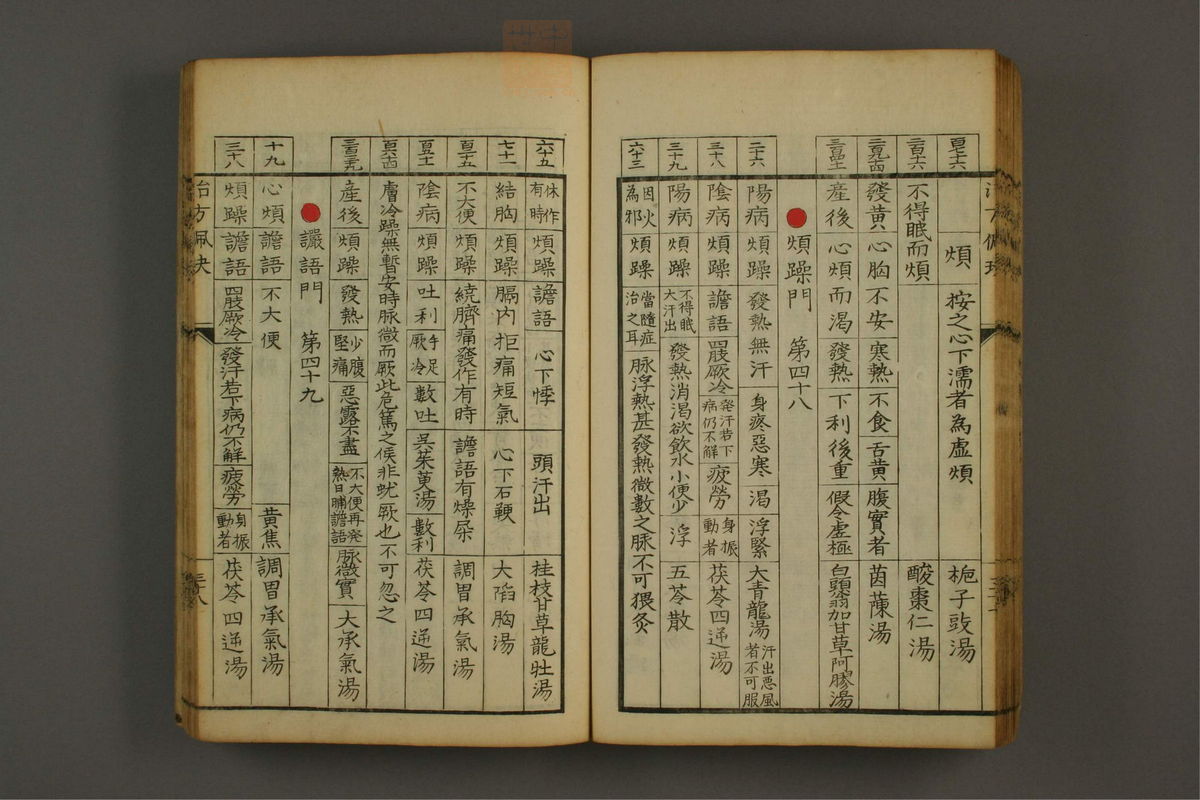 百七十六 煩 按之心下濡者為虛煩 梔子豉湯
不得眠而煩 酸棗仁湯
發黃 心胸不安 寒熱 不食 舌黃 腹實者 茵蔯湯
產後 心煩而渴 發熱 下利後重 假令虛極 白頭翁加甘草阿膠湯
煩躁門 第四十八
二十六 陽病 煩躁 發熱無汗 身疼惡寒 渴 浮緊 大青龍湯 汗出惡風者不可服
三十八 陰病 煩躁 譫語 四肢厥冷 發汗若下病仍不解 疲勞 身振動者 茯苓四逆湯
三十九 陽病 煩躁 不得眠大汗出 發熱消渴欲飲水小便少 浮 五苓散
六十三 因火為邪 煩躁 當隨症治之耳 脉浮熱甚發熱微數之脉不可猥灸
六十五 休作有時 煩躁 譫語 心下悸 頭汗出 桂枝甘草龍牡湯
七十一 結胸 煩躁 膈內拒痛短氣 心下石鞕 大䧟胸湯
百十五 不大便 煩躁 繞臍痛發作有時 譫語有燥屎 調胃承氣湯
陰病 煩躁 吐利 手足厥冷 數吐 吳茱萸湯 數利 茯苓四逆湯
膚冷躁無暫安時脉微而厥此危篤之候非蚘厥也不可忽之
產後 煩躁 發熱 少腹堅痛 惡露不盡 不大便再發熱日晡譫語 脉微實 大承氣湯
讝語門 第四十九
十九 心煩譫語 不大便 黃焦 調胃承氣湯
三十八 煩躁 譫語 四肢厥冷 發汗若下病仍不解 疲勞 身振動者 茯苓四逆湯
治方佩